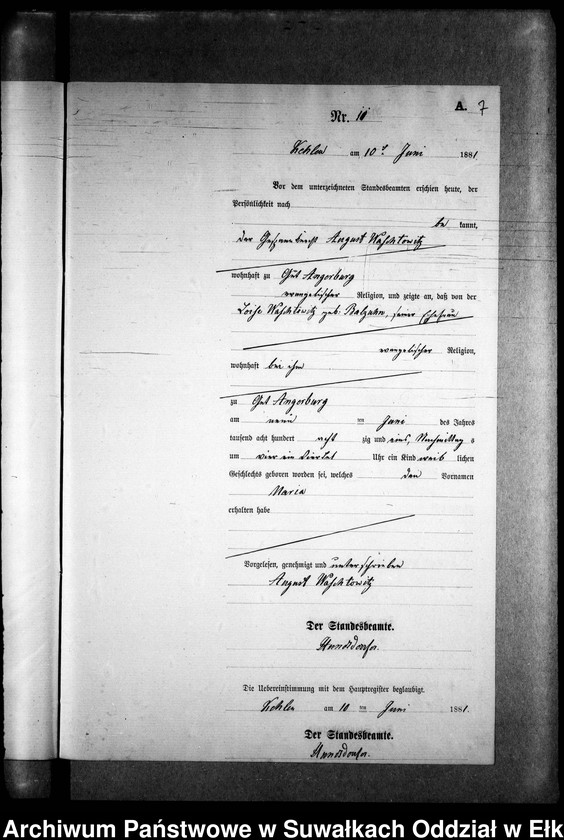 A. 7
Nr. 10
Kehlen am 10t Juni 1881.
Vor dem unterzeichneten Standesbeamten erschien heute, der
Persönlichkeit nach
be kannt,
der August Waschkowitz
wohnhaft zu Gut Angerburg
evangelischer Religion, und zeigte an, daß von der
Waschkowitz geb. seiner Ehefrau
evangelischer Religion,
wohnhaft bei ihm
zu Gut Angerburg
am neun ten Juni des Jahres
tausend acht hundert acht zig und eins, Nachmittag s
um vier ein Viertel Uhr ein Kind weib lichen
Geschlechts geboren worden sei, welches den Vornamen
Maria
erhalten habe
Vorgelesen, genehmigt und unterschrieben
August Waschkowitz
Der Standesbeamte.
Die Uebereinstimmung mit dem Hauptregister beglaubigt.
Kehlen am 10 ten Juni 1881.
Der Standesbeamte.
Archiwum Państwowe w Suwałkach Oddział w Ełk